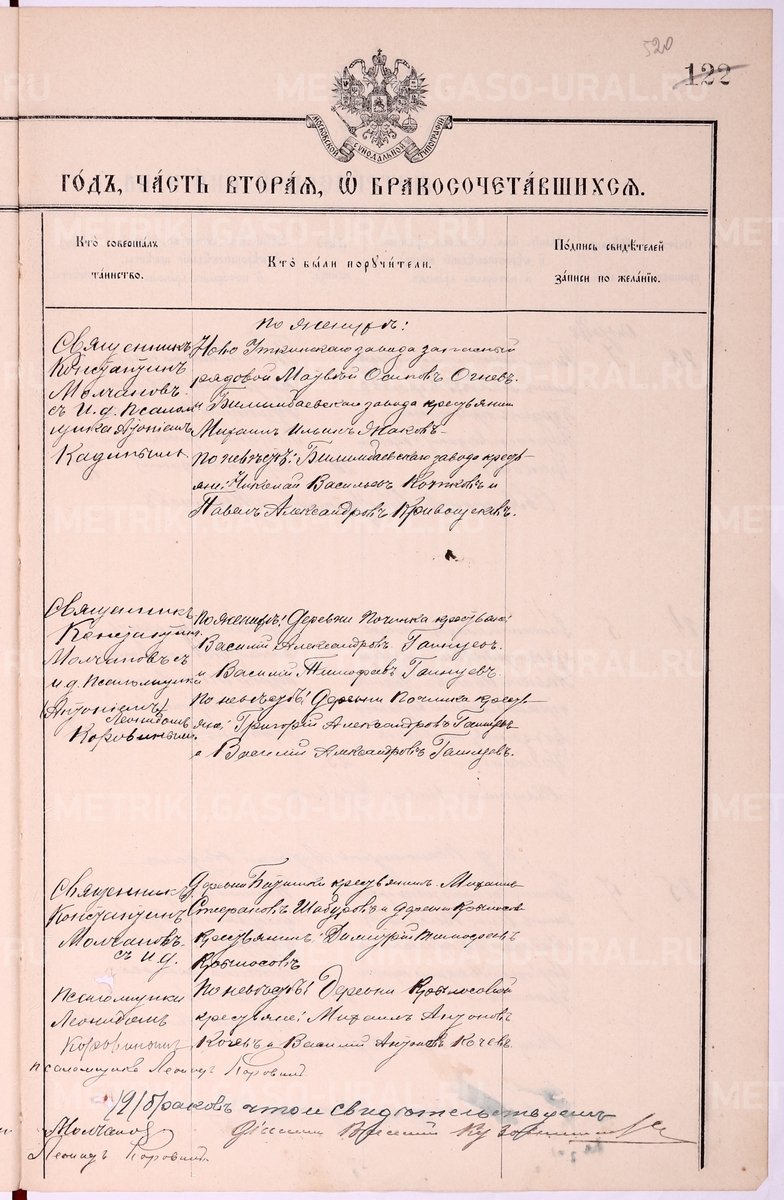 520
122
МОСКОВСКОЙ СѴНОДАЛЬНОЙ ТИПОГРАФІИ
ГО́ДЪ, ЧА́СТЬ ВТОРА́Я, Ѽ БРАКОСОЧЕТА́ВШИХСЯ.
Кто̀ соверша́лъ
та́инство.
Кто̀ бы́ли порꙋчи́тели.
По́дпись свидѣ́телей
за́писи по жела́нїю.
Священникъ
Константинъ
Молчановъ
съ и. д. Псалом
щика
По женихѣ:
Ново Уткинскаго завода запасный
рядовой Матвѣй Осиповъ Огневъ
и Билимбаевскаго завода крестьянин
Михаилъ Ильинъ
По невѣстѣ: Билимбаевскаго завода кресть-
яне: Николай Васильевъ и
Павелъ Александровъ Кривощековъ.
Священникъ
Константинъ
Молчановъ съ
и. д. Псаломщика
Леонидомъ
Коровинымъ
По женихѣ: Деревни Починка крестьяне:
Василій Александровъ
и Василій Тимофеевъ
По невѣстѣ: Деревни Починка кресть-
яне: Григорій Александровъ
и Василій Александровъ
Священникъ
Константинъ
Молчановъ
съ и. д.
Псаломщика
Леонидомъ
Коровинымъ
Деревни крестьянинъ Михаилъ
Стефановъ Шабуровъ и деревни
крестьянинъ: Димитрій Тимофеевъ
Крылосовъ
По невѣстѣ: Деревни Крылосовой
крестьяне: Михаилъ Антоновъ
Кочевъ и Василій Антоновъ Кочевъ.
псаломщикъ Леонидъ Коровинъ
браковъ в томъ свидѣтельствуемъ
Молчановъ
Василій
Леонидъ Коровинъ
METRIKI.GASO-URAL.RU